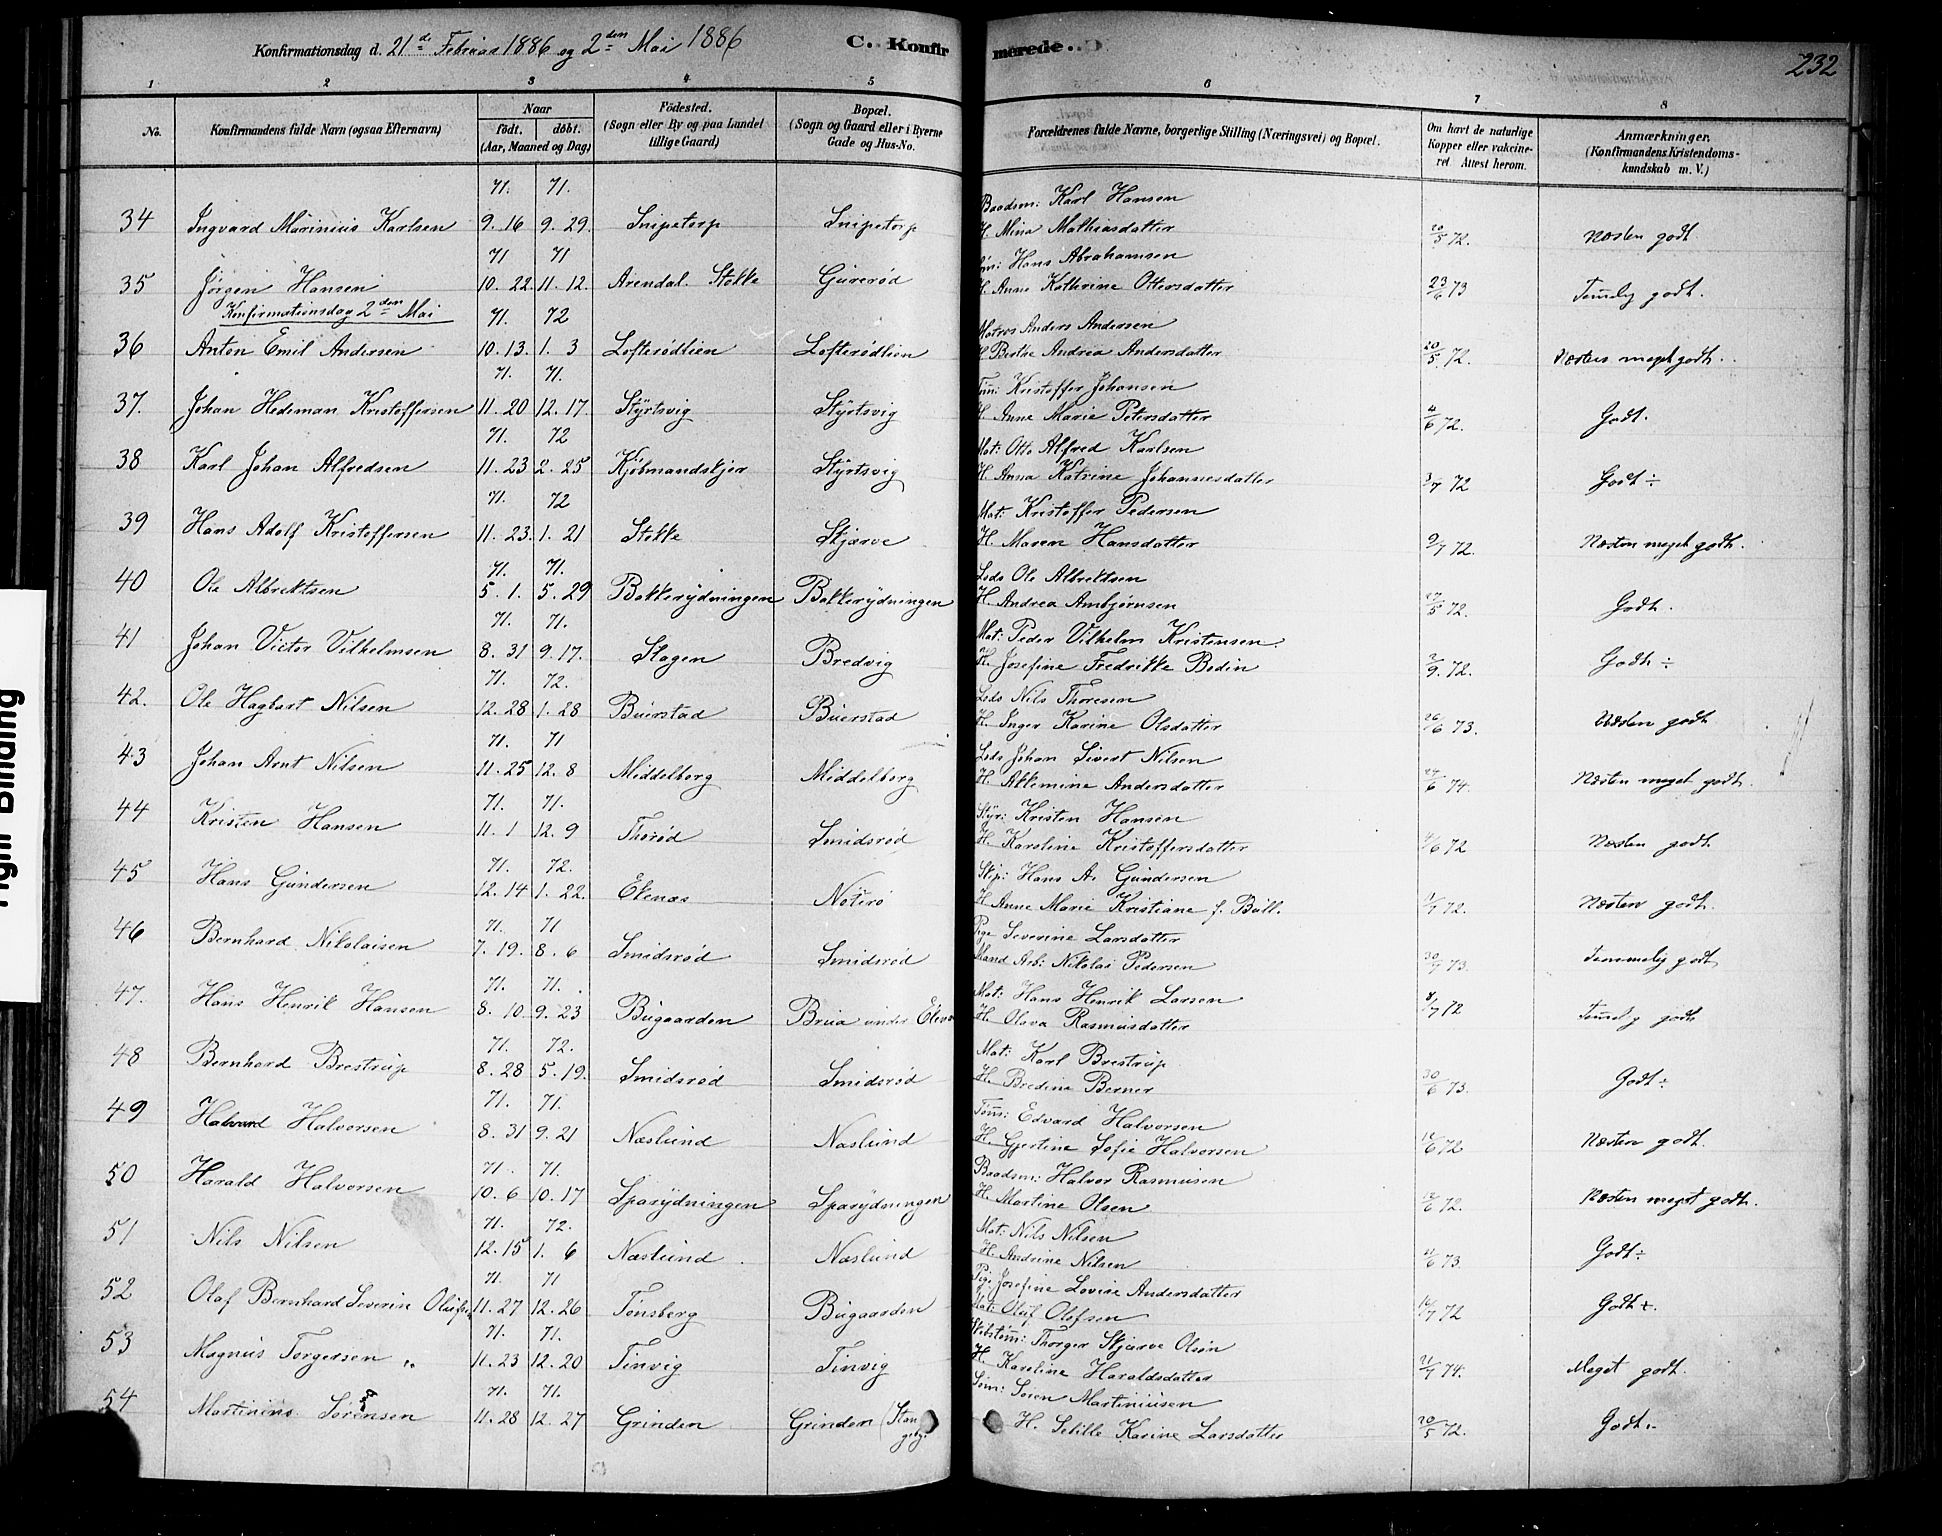 Konfirmationsdag d. 21de Februar 1886 og 2den Mai 1886 C. Konfirmerede. 232
1 2 3 4 5 6 7 8
No. Konfirmandens fulde Navn (ogsaa Efternavn) Naar født. døbt. (Aar, Maaned og Dag) Fødested. (Sogn eller By og paa Landet tillige Gaard) Bopæl. (Sogn og Gaard eller i Byerne Gade og Hus-No. Forældrenes fulde Navne, borgerlige Stilling (Næringsvei) og Bopæl. Om havt de naturlige Kopper eller vakcineret. Attest herom. Anmærkninger. (Konfirmandens Kristendomskundskab m. V.)
71. 71. Baadsm: Karl Hansen
34 Ingvard Marinius Karlsen 9. 16 9. 29. Snipetorp Snipetorp H. Mina Mathiasdatter 20/5 72. Næsten godt
71 71 Hans Abrahamsen
35 Jørgen Hansen 10. 22. 11. 12. Arendal. Stokke Gurerød H. Anne Kathrine Ottersdatter 23/6 73 Temelig godt.
Konfirmationsdag 2den Mai
71. 72 Matros Anders Andersen
36 Anton Emil Andersen 10. 13. 1. 3 Lofterødlien Lofterødlien H. Berthe Andrea Andersdatter 20/5 72. Næsten meget godt.
71. 71. Tøm: Kristoffer Johansen
37. Johan Hedeman Kristoffersen 11. 20 12. 17. Styrtsvig Styrtsvig H. Anne Marie Petersdatter 4/6 72. Godt.
71. 72 Mat: Otto Alfred Karlsen
38 Karl Johan Alfredsen 11. 23 2. 25 Kjøbmandskjer Styrtsvig H. Anna Katrine Johannesdatter 3/7 72 Godt ÷
71. 72 Mat: Kristoffer Pedersen
39 Hans Adolf Kristoffersen 11. 23. 1. 21 Stokke Skjærve H. Maren Hansdatter 9/7 72. Næsten meget godt.
71. 71. Lods Ole Albrektsen
40 Ole Albrektsen 5. 1. 5. 29 Bakkerydningen Bakkerydningen H. Andrea Ambjørnsen 17/5 72. Godt.
71. 71. Mat: Peder Vilhelm Kristensen
41 Johan Victor Vilhelmsen 8. 31 9. 17. Slagen Bredvig H. Josefine Fredrikke Bodin 2/9. 72. Godt ÷
71. 72. Lods Nils Thoresen
42. Ole Hagbart Nilsen 12. 28 1. 28 Buerstad Buerstad H. Inger Karine Olsdatter 26/6 73. Næsten godt
71. 71 Lods Johan Sivert Nilsen
43 Johan Arnt Nilsen 11. 25 12. 8 Middelborg Middelborg H. Allemine Andersdatter 24/6 74. Næsten meget godt.
71. 71. Styr: Kristen Hansen
44 Kristen Hansen 11. 1 12. 9 Thorød Smidsrød H. Karoline Kristoffersdatter 4/6 72 Næsten godt
71. 72. Skip: Hans A. Gundersen
45 Hans Gundersen 12. 14 1. 22. Ekenæs Nøterø H. Anne Marie Kristiane f. Bull. 1/7 72. Næsten godt.
71. 71 Pige Severine Larsdatter
46 Bernhard Nikolaisen 7. 19. 8. 6 Smidsrød Smidsrød Mand Arb: Nikolai Pedersen 30/7 73. Temmelig godt
71. 71. Mat: Hans Henrik Larsen
47. Hans Henrik Hansen 8. 10. 9. 23 Bugaarden Brua under H. Olava Rasmusdatter 8/7 72 Temelig godt
71. 72. Mat: Karl Brestrup
48 Bernhard Brestrup 8. 28 5. 19. Smidsrød Smidsrød H. Bredine Berner 30/6 73. Godt ÷
71. 71. Tøm: Edvard Halvorsen
49 Halvard Halvorsen 8. 31 9. 21 Næslund Næslund H. Gjertine Sofie Halvorsen 12/6 72 Næsten godt.
71. 71. Baadsm: Halvor Rasmusen
50 Harald Halvorsen 10. 6 10. 17 Sparydningen Sparydningen H. Martine Olsen 12/6 72. Næsten meget godt.
71. 72. Mat: Nils Nilsen
51 Nils Nilsen 12. 15 1. 6 Næslund Næslund H. Andrine Nilsen 4/6 73. Godt ÷
71. 71 Pige Josefine Lovise Andersdatter
52 Olaf Bernhard Severin 11. 27 12. 26 Tønsberg Bugaarden Mat: Oluf Olefsen 16/7 72 Godt ÷.
71. 71. Skibstøm: Thorger Skjærve Olsøn
53 Magnus Torgersen 11. 23 12. 20 Tinvig Tinvig H. Karoline Haraldsdatter 21/7 74. Meget godt.
71. 71. Tøm: Søren Martiniusen
54 Martinius Sørensen 11. 28 12. 27 Grinden Grinden H. Sebille Karine Larsdatter 20/5 72. Godt ÷